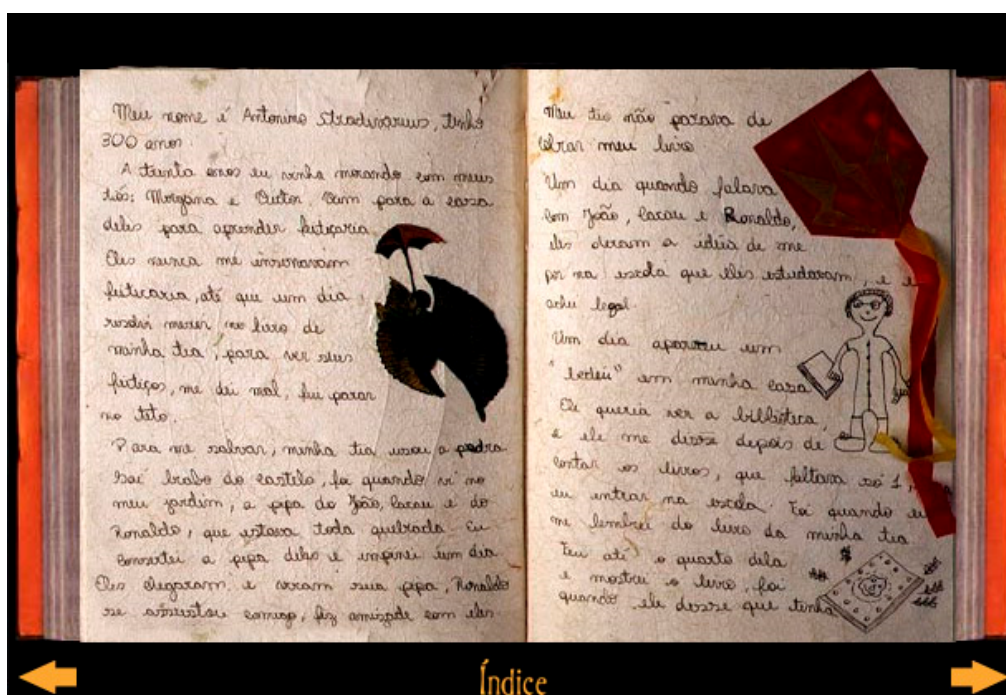 Meu nome é Antonino Stradivarius, tinho
300 anos.
A trinta anos eu vinha morando com meus
tiós: Morgana e Victor. Vim para a casa
deles para aprender feitiçaria
Eles nunca me ensinavam
feiticaria, até que um dia
resolvi mexer no livro de
minha tia, para ver seus
feitiços, me dei mal, fui parar
no teto.
Para me salvar, minha tia usou a pedra
Saí brabo do castelo, foi quando vi no
meu jardim, a pipa do João, Cacau e do
Ronaldo, que estava toda quebrada. Eu
consertei a pipa deles e impinei um dia
Eles chegaram e viram sua pipa, Ronaldo
se assustou comigo, fiz amizade com eles
Meu tio não parava de
cobrar meu livro
Um dia quando falava
com João, Cacau e Ronaldo,
eles deram a idéia de me
por na escola que eles estudavam, e e
achei legal
Um dia apareceu um
" em minha casa
Ele queria ver a biblioteca,
e ele me disse depois de
contar os livros, que faltava só 1,
eu entrar na escola. Foi quando eu
me lembrei do livro da minha tia
Fui até o quarto dela
e mostrei o livro, foi
quando ele disse que tinha
Índice